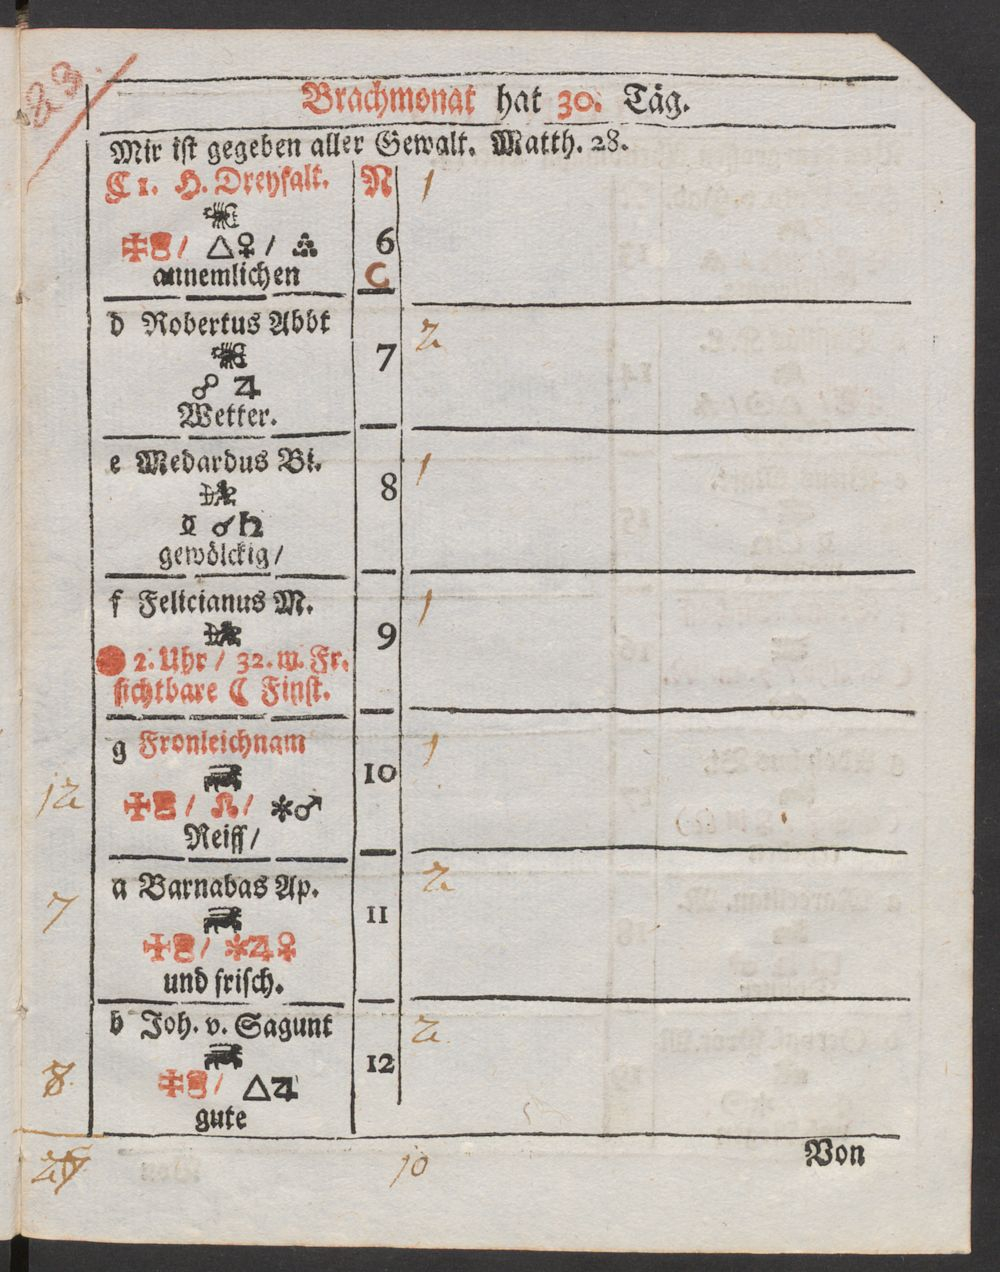 83.
Brachmonat hat 30. Täg.
Mir ist gegeben aller Gewalt. Matth. 28.
C 1. H. Dreyfalt. N 1
6
△♀ /
annemlichen C
d Robertus Abbt 2
7
☍ ♃
Wetter.
e Medardus Bi. 1
8
☿ ☌ ♄
gewölckig/
f Felicianus M. 1
9
2. Uhr / 32. m. Fr.
sichtbare ☾ Finst.
g Fronleichnam 1
10
12 / ☊ / ✶♂
Reiff/
a Barnabas Ap. 2
7 11
/ ✶♃♀
und frisch.
b Joh. v. Sagunt 2
12
8. / △♃
gute
Von
10